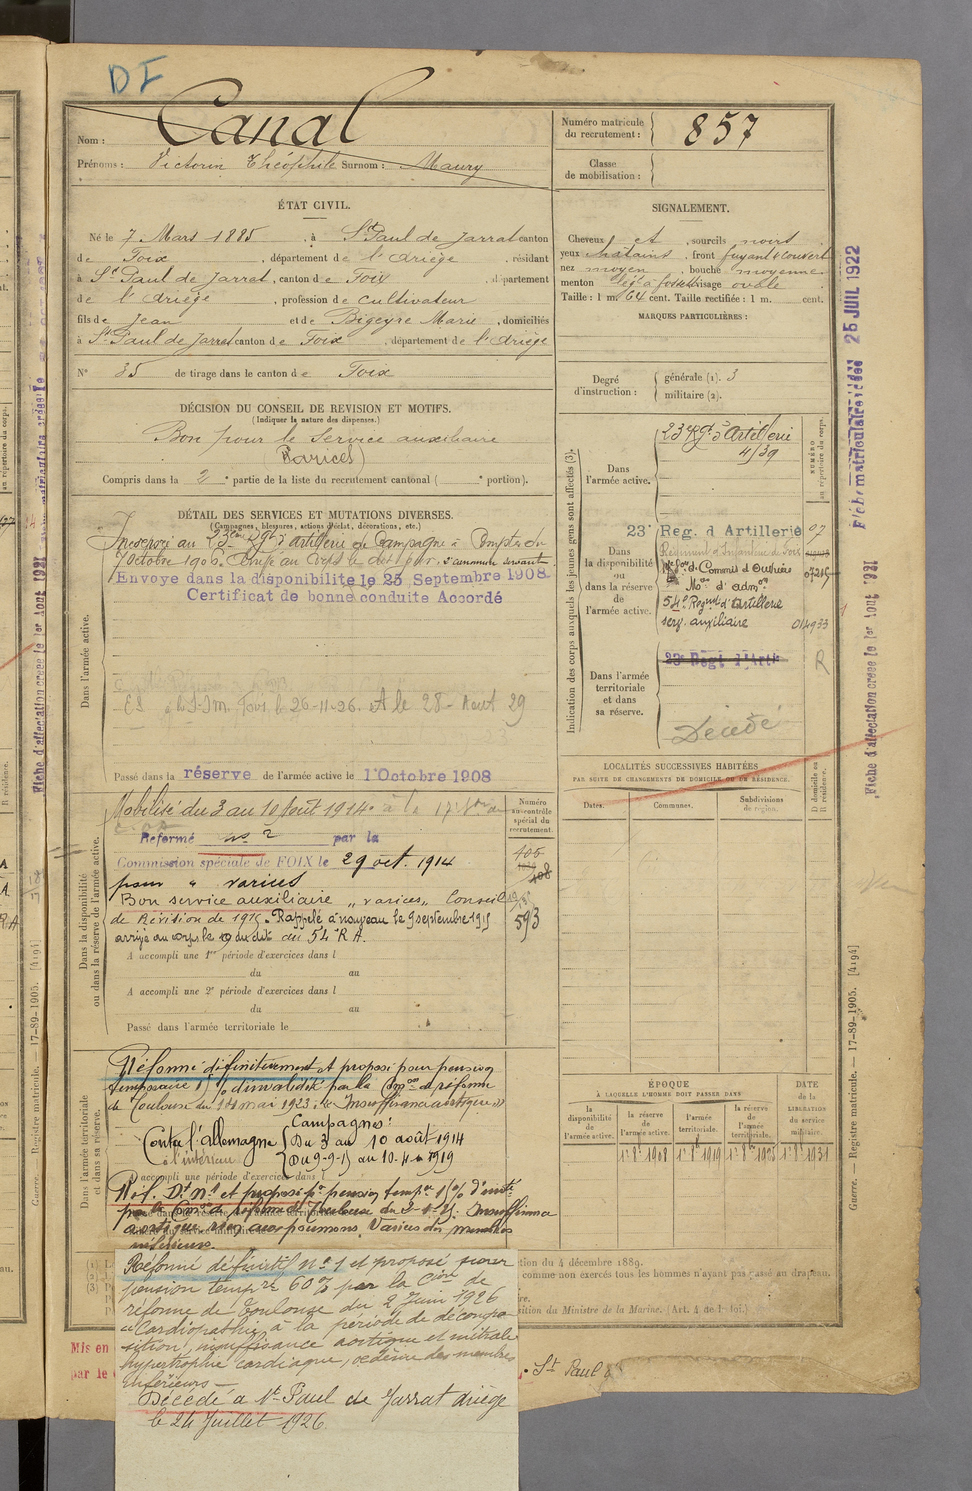 DF
Nom : Canal
Prénoms : Victorin Théophile Surnom : Maury
Numéro matricule du recrutement : 857
Classe de mobilisation :
ÉTAT CIVIL.
Né le 7 Mars 1885, à St Paul de Jarrat canton
de Foix, département de l'Ariège, résidant
à St Paul de Jarrat, canton de Foix, département
de l'Ariège, profession de cultivateur
fils de Jean et de Bigeyre Marie, domiciliés
à St Paul de Jarrat canton de Foix, département de l'Ariège
N° 35 de tirage dans le canton de Foix
SIGNALEMENT.
Cheveux et, sourcils noirs
yeux chatains, front fuyant & couvert
nez moyen, bouche moyenne
menton visage ovale
Taille : 1 m. 64 cent. Taille rectifiée : 1 m. cent.
MARQUES PARTICULIÈRES :
Degré d'instruction : générale (1). 3
militaire (2).
DÉCISION DU CONSEIL DE REVISION ET MOTIFS.
(Indiquer la nature des dispenses.)
Bon pour le Service auxiliaire
(Varices)
Compris dans la 2e partie de la liste du recrutement cantonal ( e portion).
DÉTAIL DES SERVICES ET MUTATIONS DIVERSES.
(Campagnes, blessures, actions d'éclat, décorations, etc.)
Incorporé au 23ème Rgt d'artillerie de Campagne à Compter du
7 Octobre 1906.
Envoyé dans la disponibilité le 25 Septembre 1908
Certificat de bonne conduite Accordé
Dans l'armée active.
26-11-26. et le 28-Aout 29
Passé dans la réserve de l'armée active le 1er Octobre 1908
Indication des corps auxquels les jeunes gens sont affectés (3).
Dans l'armée active.
23 Rgt d'Artillerie
4/39
NUMÉRO au répertoire du corps.
Dans la disponibilité ou dans la réserve de l'armée active.
23e Reg. d Artillerie 97
Régiment d'Infanterie de Foix
Son d. Commis et Ouvriers
Mres d'admon
54e Regmt d'Artillerie
serv. auxiliaire 014933
Dans l'armée territoriale et dans sa réserve.
23e Régt d'Artie
R
Décédé
LOCALITÉS SUCCESSIVES HABITÉES
PAR SUITE DE CHANGEMENTS DE DOMICILE OU DE RÉSIDENCE.
Dates. Communes. Subdivisions de région. D domicile ou R résidence.
Dans la disponibilité ou dans la réserve de l'armée active.
Mobilisé du 3 au 10 Août 1914
Numéro au contrôle spécial du recrutement.
Réformé no 2 par la
Commission spéciale de FOIX le 29 oct. 1914
pour " varices
Bon service auxiliaire "varices" Conseil
de Révision de 1915. Rappelé à nouveau le 9 septembre 1915
arrivé au corps le 9 dudit au 54e R A.
105
108
593
A accompli une 1re période d'exercices dans l
du au
A accompli une 2e période d'exercices dans l
du au
Passé dans l'armée territoriale le
Dans l'armée territoriale et dans sa réserve.
Réformé définitivement et proposé pour pension
temporaire % d'invalidité par la Comon de réforme
de Toulouse du mai 1923: "Insuffisance aortique"
Campagnes:
Contre l'Allemagne Du 3 au 10 août 1914
à l'intérieur Du 9-9-15 au 10-4-1919
A accompli une période d'exercices dans l
Réf. Dt No 1 et proposé pr pension tempre % d'invté
par la Comon de réforme de Toulouse du Insuffisance
aortique, rien aux poumons. Varices des membres
inférieurs.
Réformé définitif no 1 et proposé pour
pension tempre 60 % par la Cion de
réforme de Toulouse du 2 Juin 1926
"Cardiopathie à la période de décompo-
sition, insuffisance aortique et mitrale
hypertrophie cardiaque, oedème des membres
inférieurs -
Décédé à St Paul de Jarrat Ariège
le 24 Juillet 1926.
ÉPOQUE
À LAQUELLE L'HOMME DOIT PASSER DANS
la disponibilité de l'armée active. la réserve de l'armée active. l'armée territoriale. la réserve de l'armée territoriale.
DATE DE LA LIBÉRATION du service militaire.
1er 8bre 1908 1er 8bre 1919 1er 8bre 1925 1er 8bre 1931
tion du 4 décembre 1889.
comme non exercés tous les hommes n'ayant pas passé au drapeau.
sition du Ministre de la Marine. (Art. 4 de l
Mis en
par le
St Paul
Fiche matriculaire créée 25 JUIL 1922
Fiche d'affectation créée le 1er Aout 1921
Guerre. — Registre matricule. — 17-89-1905. [4194]
Fiche d'affectation créée le 1er Aout 1921
Guerre. — Registre matricule. — 17-89-1905. [4194]